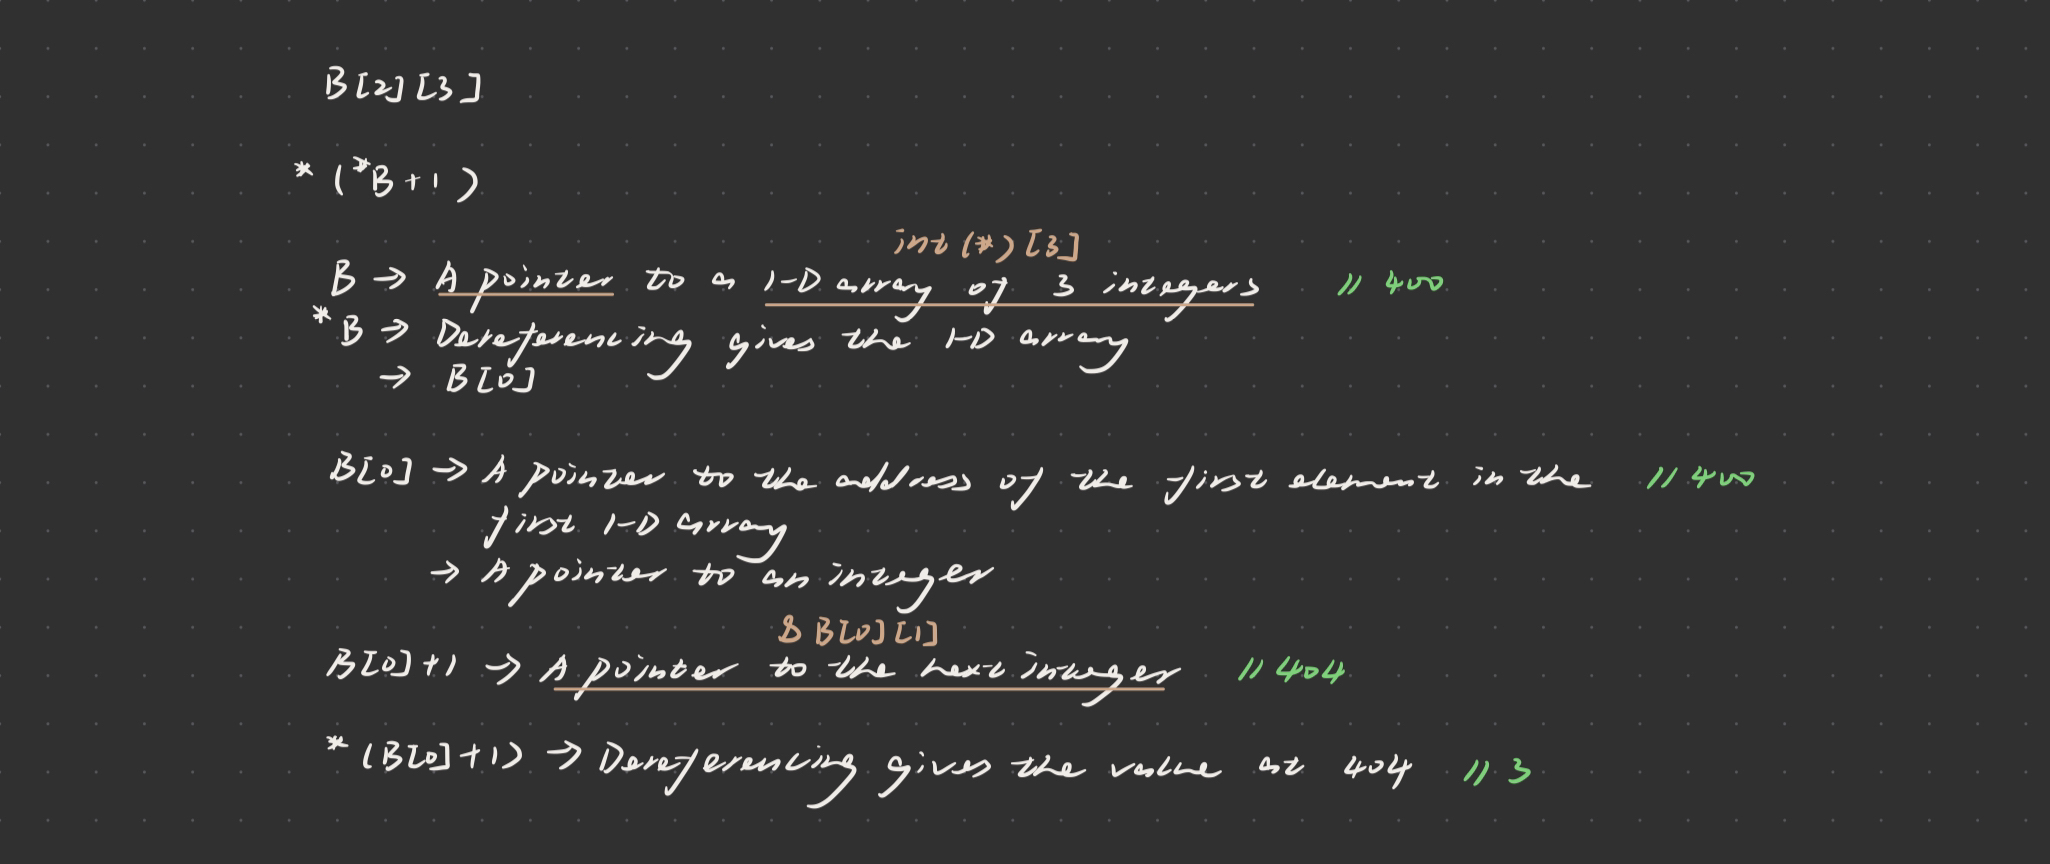 B[2][3]
*(*B+1)
int(*)[3]
B → A pointer to a 1-D array of 3 integers // 400
*B → Dereferencing gives the 1-D array
→ B[0]
B[0] → A pointer to the address of the first element in the // 400
first 1-D array
→ A pointer to an integer
&B[0][1]
B[0]+1 → A pointer to the next integer // 404
*(B[0]+1) → Dereferencing gives the value at 404 // 3